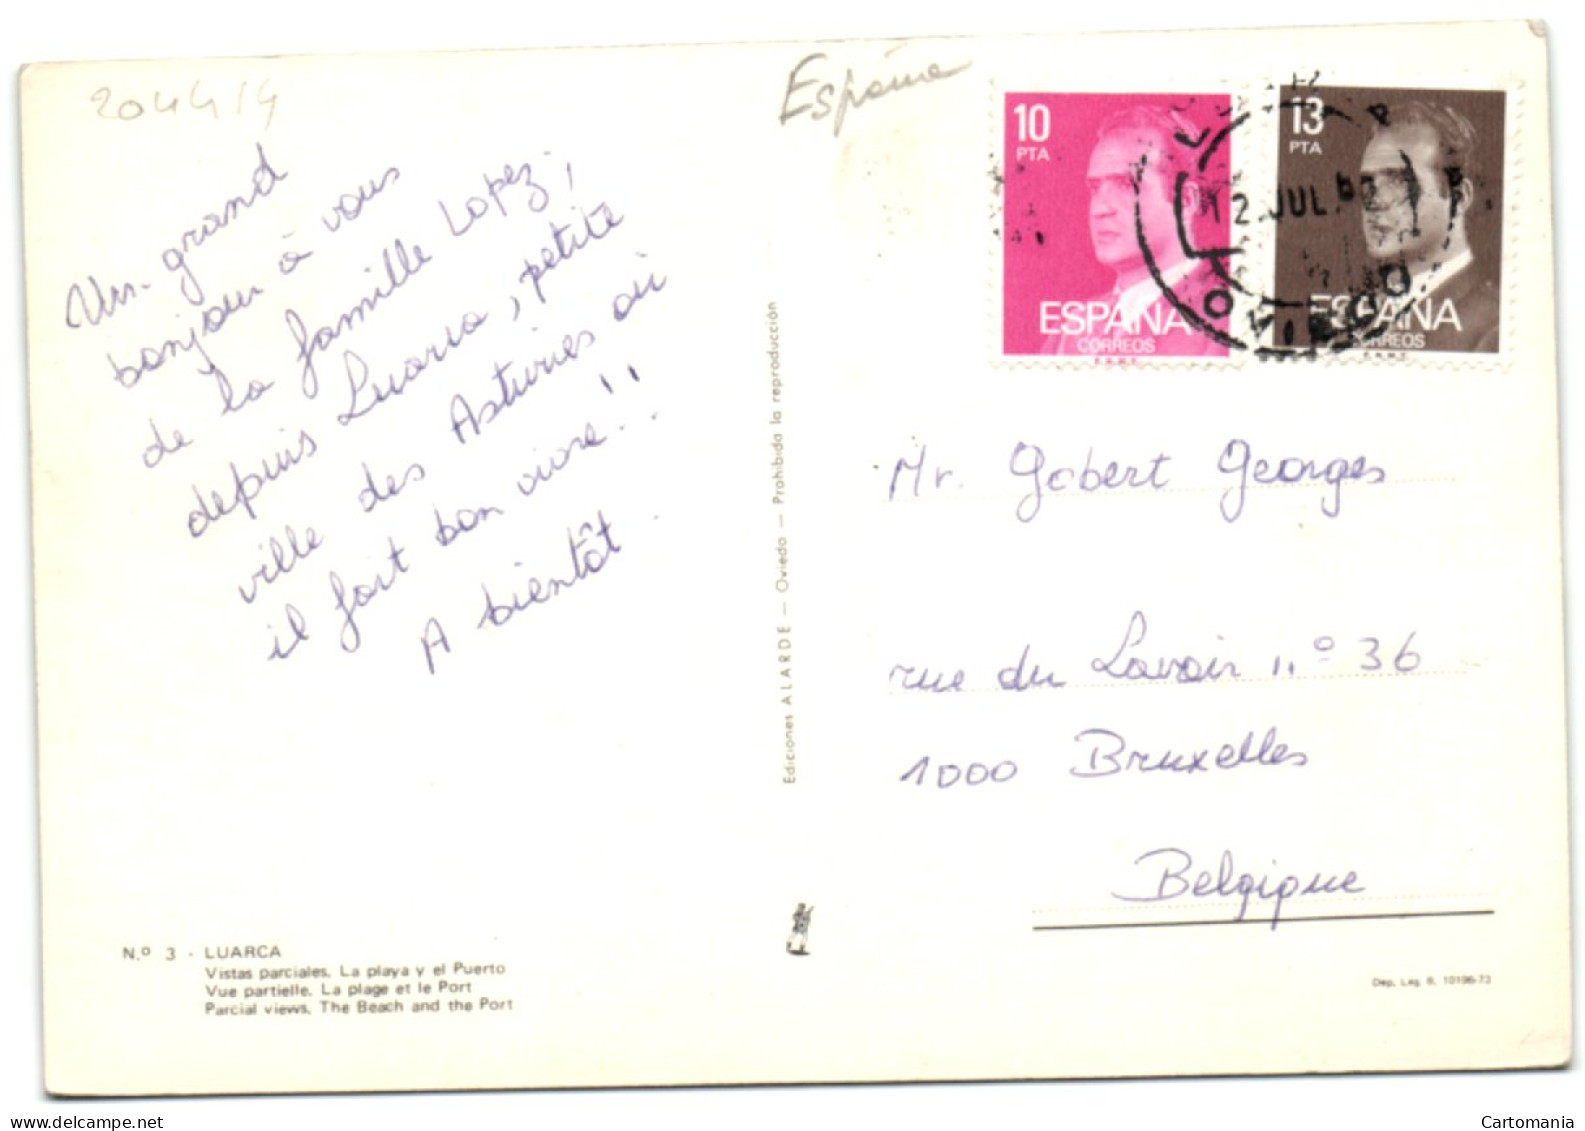 204414
Un grand
bonjour à vous
de la famille Lopez,
depuis Luarca, petite
ville des Asturies où
il fait bon vivre!!
A bientôt.
Nº 3 - LUARCA
Vistas parciales. La playa y el Puerto
Vue partielle. La plage et le Port
Parcial views. The Beach and the Port
Ediciones ALARDE — Oviedo — Prohibida la reproducción
España
10
PTA
ESPAÑA
CORREOS
F.N.M.T.
13
PTA
ESPAÑA
CORREOS
F.N.M.T.
12 JUL
OVIEDO
Mr. Gobert Georges
rue du Lavoir n.º 36
1000 Bruxelles
Belgique
Dep. Leg. B. 10196-73
www.delcampe.net
Cartomania